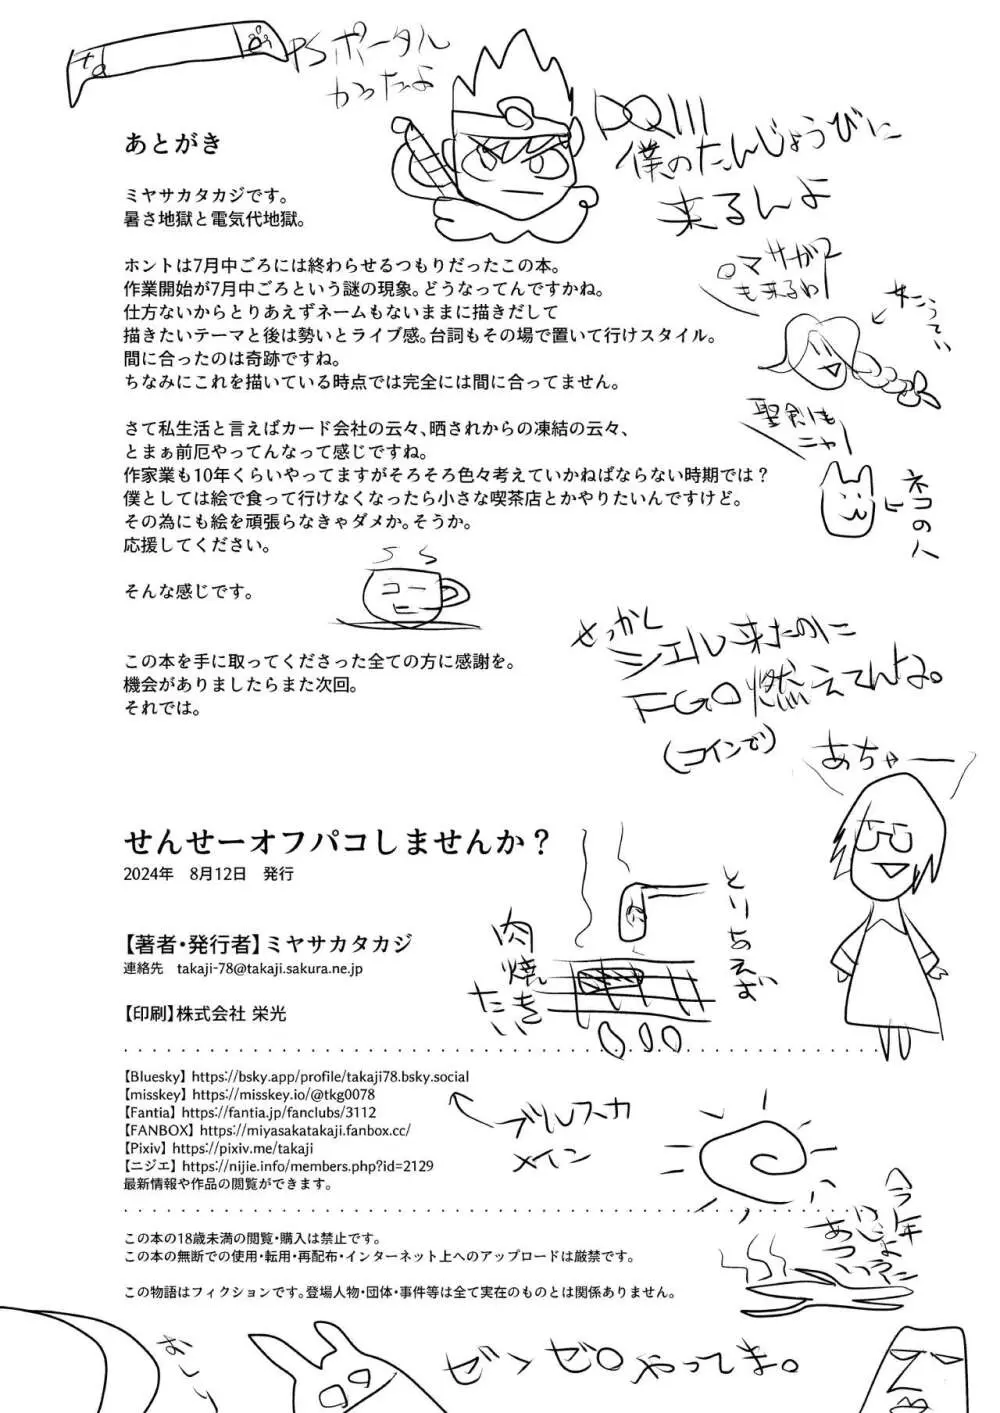 PSポータル
かったよ
DQIII
僕のたんじょうびに
来るんよ
あとがき
ミヤサカタカジです。
暑さ地獄と電気代地獄。
ロマサガ2
も来るわ!
ホントは7月中ごろには終わらせるつもりだったこの本。
作業開始が7月中ごろという謎の現象。どうなってんですかね。
仕方ないからとりあえずネームもないままに描きだして
描きたいテーマと後は勢いとライブ感。台詞もその場で置いて行けスタイル。
間に合ったのは奇跡ですね。
ちなみにこれを描いている時点では完全には間に合ってません。
聖剣も
ニャー
ネコの人
さて私生活と言えばカード会社の云々、晒されからの凍結の云々、
とまぁ前厄やってんなって感じですね。
作家業も10年くらいやってますがそろそろ色々考えていかねばならない時期では？
僕としては絵で食って行けなくなったら小さな喫茶店とかやりたいんですけど。
その為にも絵を頑張らなきゃダメか。そうか。
応援してください。
そんな感じです。
コーヒー
せっかく
シエル来たのに
FGO燃えてんよ。
(コインで)
あちゃー
この本を手に取ってくださった全ての方に感謝を。
機会がありましたらまた次回。
それでは。
せんせーオフパコしませんか？
2024年　8月12日　発行
とりちえず
肉焼きたい
【著者・発行者】ミヤサカタカジ
連絡先　takaji-78@takaji.sakura.ne.jp
【印刷】株式会社 栄光
【Bluesky】https://bsky.app/profile/takaji78.bsky.social
【misskey】https://misskey.io/@tkg0078
【Fantia】https://fantia.jp/fanclubs/3112
【FANBOX】https://miyasakatakaji.fanbox.cc/
【Pixiv】https://pixiv.me/takaji
【ニジエ】https://nijie.info/members.php?id=2129
最新情報や作品の閲覧ができます。
ブルスカ
メイン
今年
いじょうに
あつい
この本の18歳未満の閲覧・購入は禁止です。
この本の無断での使用・転用・再配布・インターネット上へのアップロードは厳禁です。
この物語はフィクションです。登場人物・団体・事件等は全て実在のものとは関係ありません。
おしり
ゼンゼロやってま。